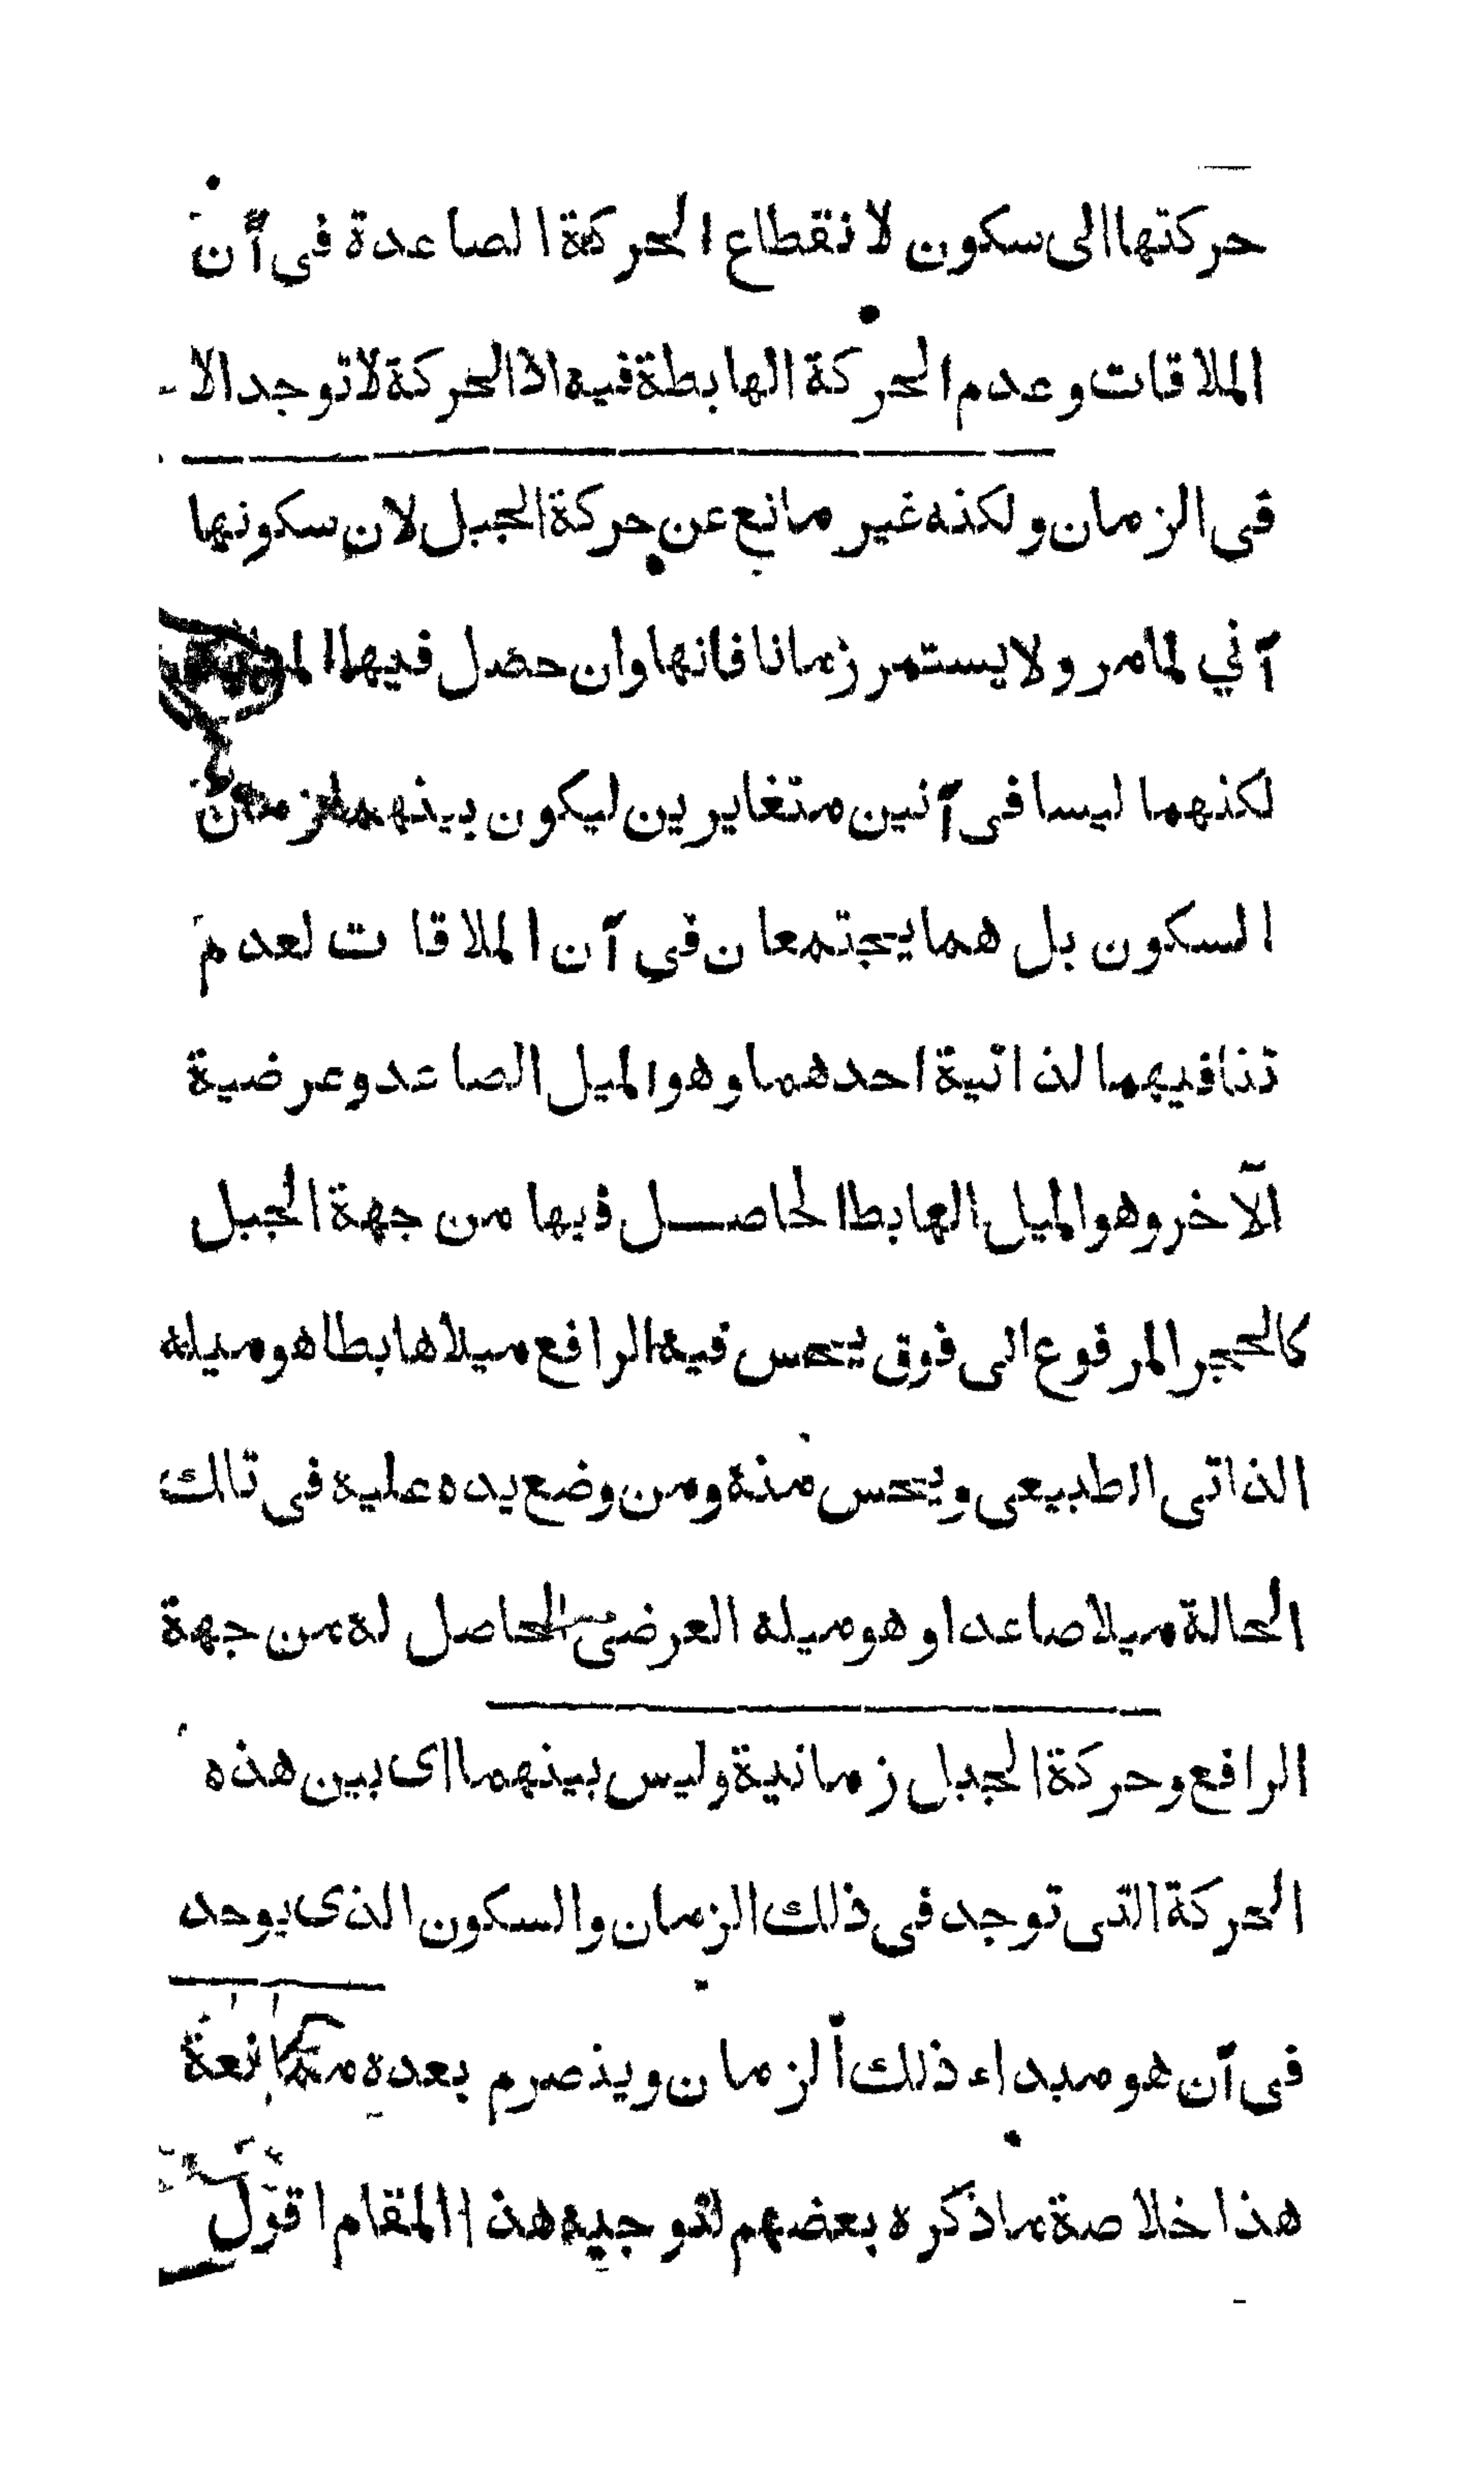 حركتها الى سكون لانقطاع الحركة الصاعدة فى آن
الملاقات وعدم الحركة الهابطة فيه اذ الحركة لا توجد الا
فى الزمان ولكنه غير مانع عن حركة الجبل لان سكونها
آني لما مر ولا يستمر زمانا فانها وان حصل فيها
لكنهما ليسا فى آنين متغايرين ليكون بينهما زمان
السكون بل هما يجتمعان فى آن الملاقات لعدم
تنافيهما لذاتية احدهما وهو الميل الصاعد وعرضية
الآخر وهو الميل الهابط الحاصل فيها من جهة الجبل
كالحجر المرفوع الى فوق يحس فيه الرافع ميلا هابطا هو ميله
الذاتى الطبيعى ويحس منه ومن وضع يده عليه فى تلك
الحالة ميلا صاعدا وهو ميله العرضى الحاصل له من جهة
الرافع وحركة الجبل زمانية وليس بينهما اى بين هذه
الحركة التى توجد فى ذلك الزمان والسكون الذى يوجد
فى آن هو مبداء ذلك الزمان وينصرم بعده
هذا خلاصة ما ذكره بعضهم لتوجيه هذا المقام اقول